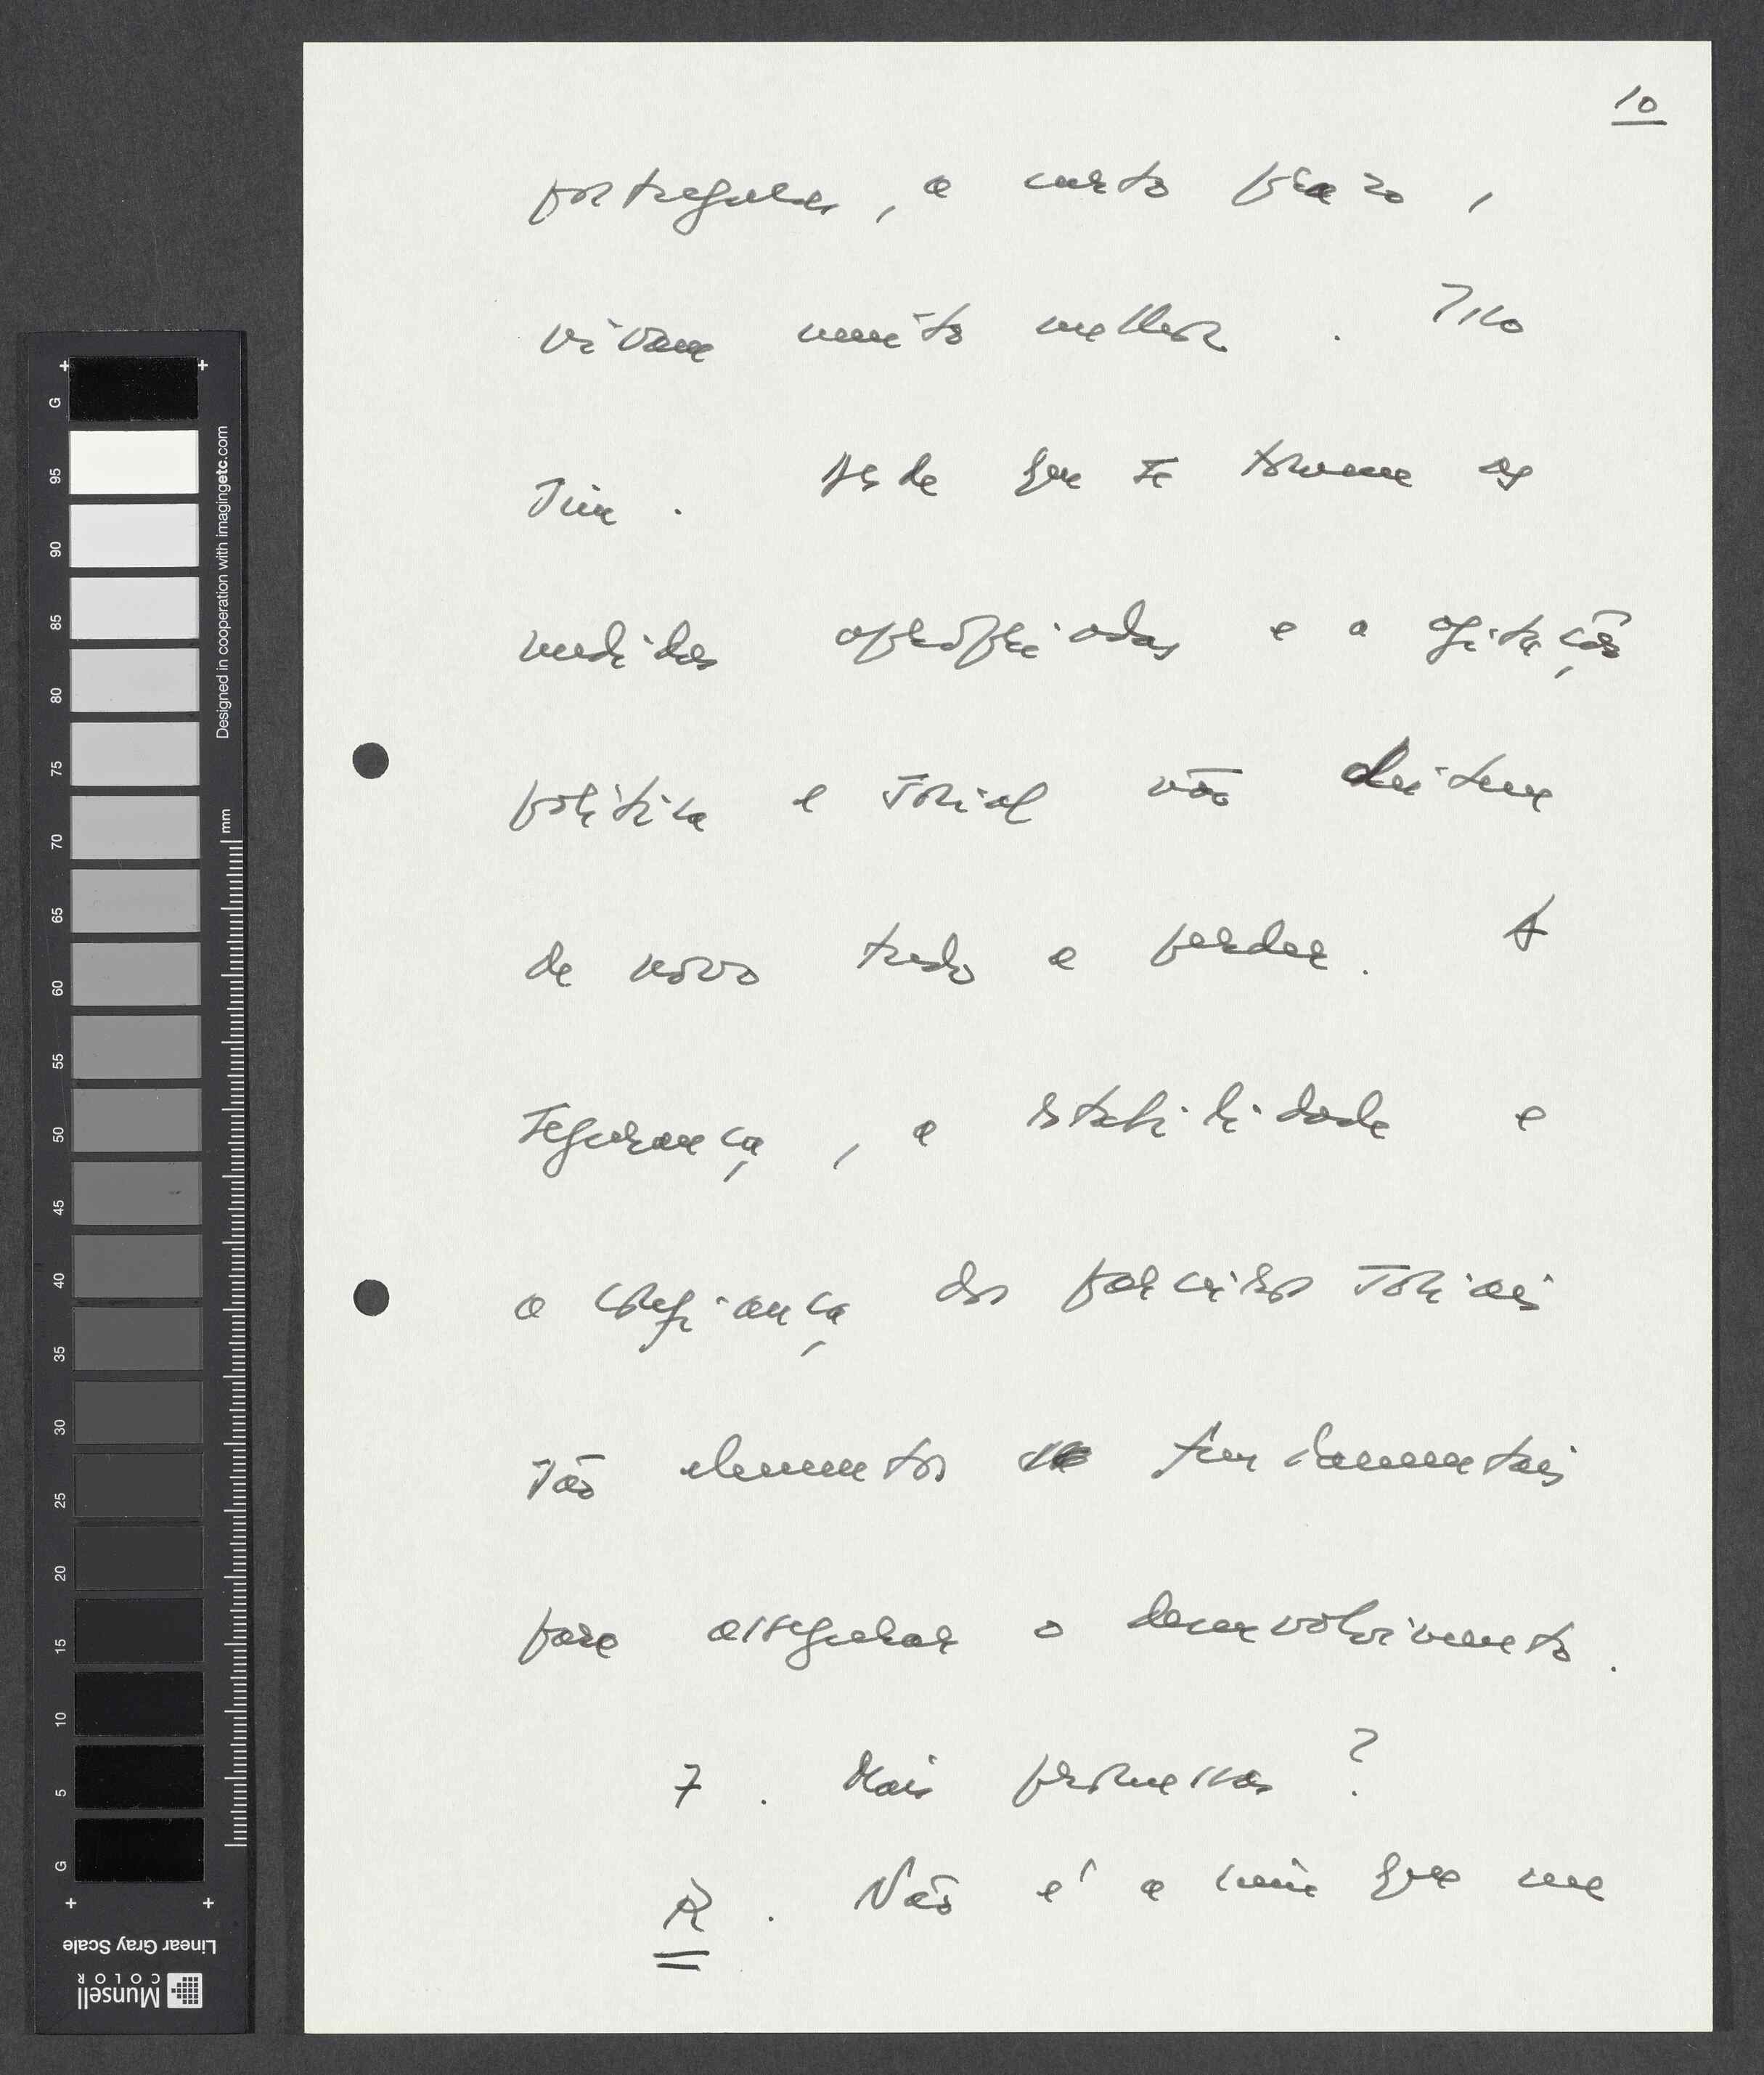 10
portugueses, a curto prazo,
vivam muito melhor. Isso
sim. desde que se tomem as
medidas apropriadas e a agitação
política e social não deitem
de novo tudo a perder. A
segurança, a estabilidade e
a confiança dos parceiros sociais
são elementos fundamentais
para assegurar o desenvolvimento.
7. Mais promessas?
R. Não é a mim que me
G
95
90
85
80
75
70
65
60
55
50
45
40
35
30
25
20
15
10
5
G
Designed in cooperation with imagingetc.com
mm
Linear Gray Scale
Munsell
COLOR